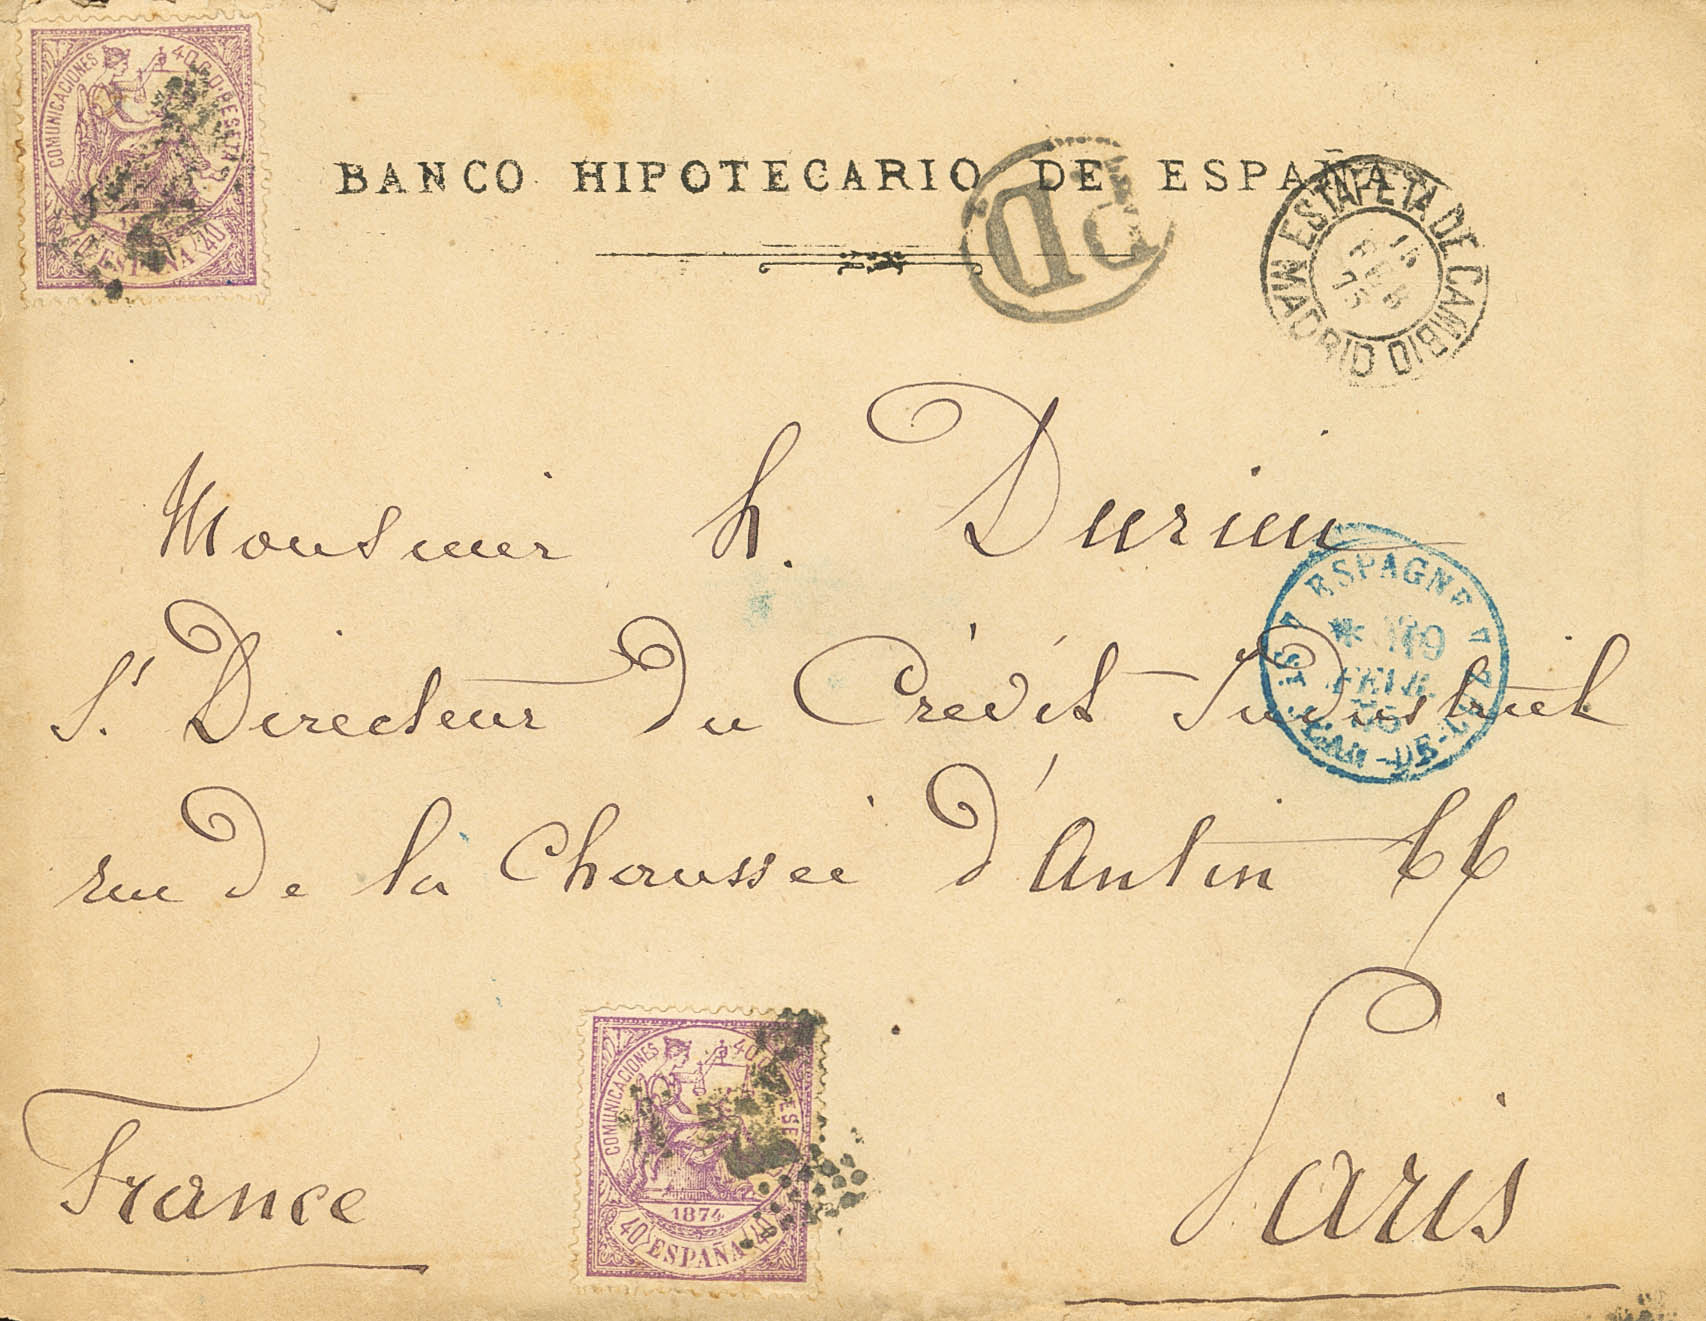 COMUNICACIONES 40 C. D. PESETA
40 ESPAÑA 40
BANCO HIPOTECARIO DE ESPAÑA
PD
ESTAFETA DE CAMBIO MADRID
FEB 75
Monsieur h. Durieu
ESPAGNE
FEVR. 75
S.t Directeur du Crédit Industriel
rue de la Chaussée d'Antin 66
COMUNICACIONES 40 C. D. PESE
1874
40 ESPAÑA 40
France
Paris